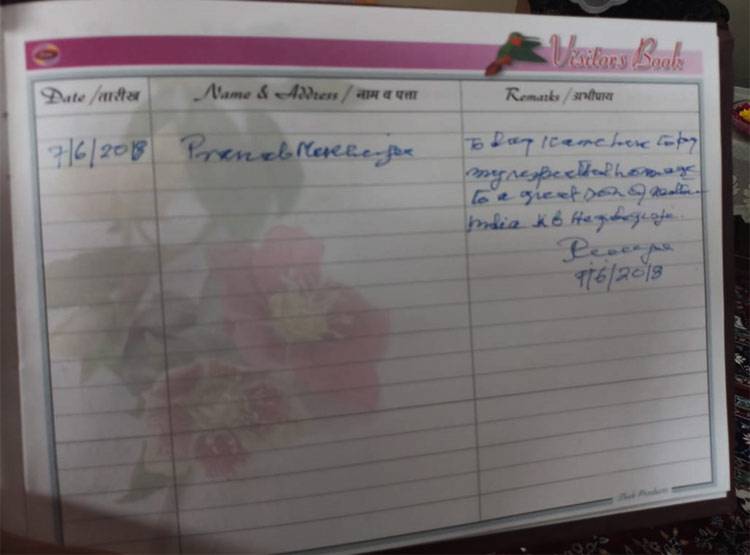 Visitors Book
Date /तारीख Name & Address / नाम व पत्ता Remarks /अभीप्राय
7/6/2018 Pranab Mukherjee Today I came here to pay
my respect and homage
to a great son of Mother
India K B Hegdegewar.
Pranab
7/6/2018